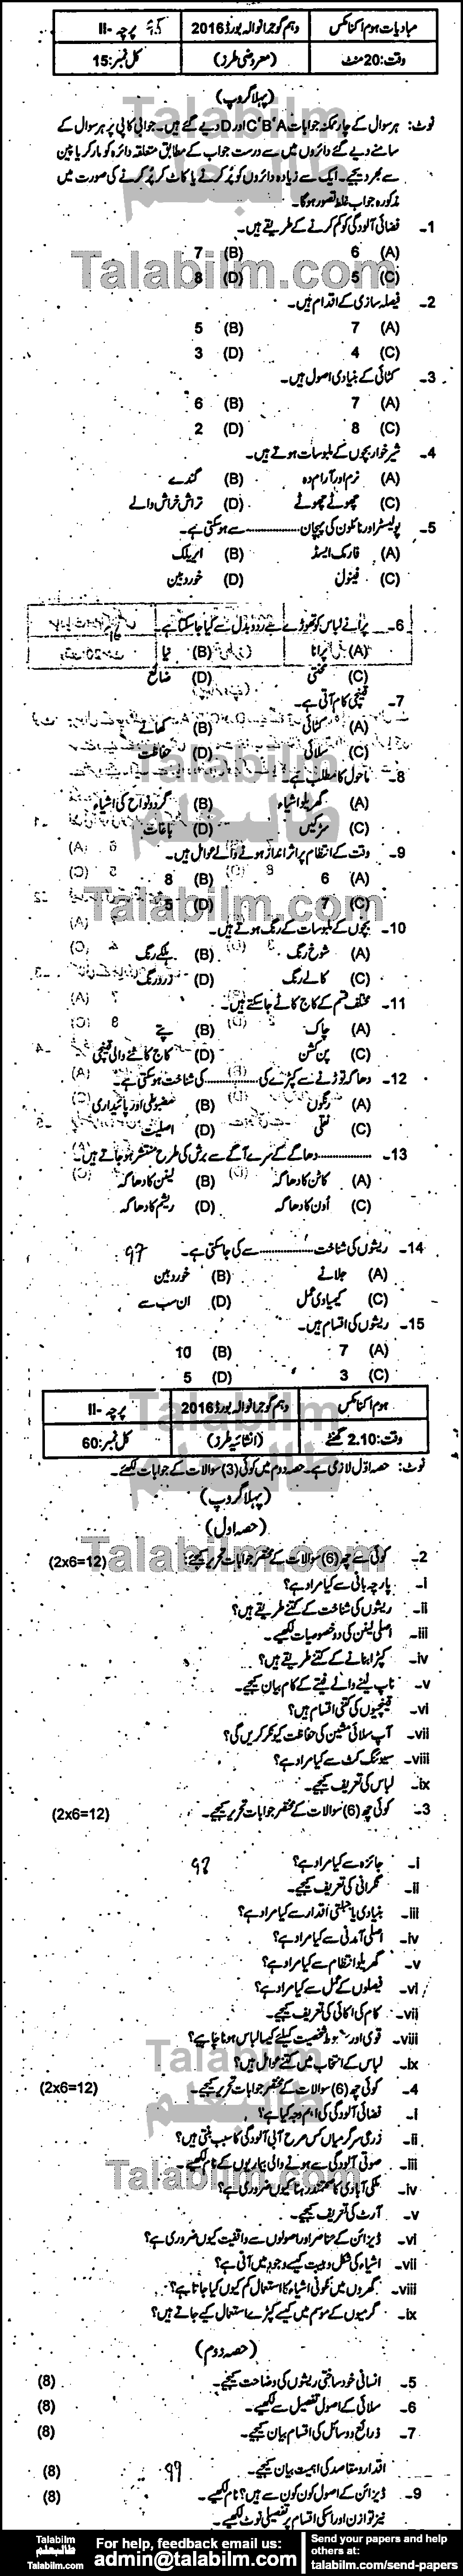 مبادیات ہوم اکنامکس	دہم گوجرانوالہ بورڈ 2016	پرچہ -II
وقت:20منٹ	(معروضی طرز)	کل نمبر:15
(پہلا گروپ)
نوٹ: ہر سوال کے چار ممکنہ جوابات C'B'A اور D دیے گئے ہیں۔ جوابی کاپی پر ہر سوال کے
سامنے دیے گئے دائروں میں سے درست جواب کے مطابق متعلقہ دائرہ کو مارکر یا پین
سے بھر دیجیے۔ ایک سے زیادہ دائروں کو پُر کرنے یا کاٹ کر پُر کرنے کی صورت میں
مذکورہ جواب غلط تصور ہوگا۔
1۔ فضائی آلودگی کو کم کرنے کے طریقے ہیں۔
(A) 6 (B) 7
(C) 5 (D) 8
2۔ فیصلہ سازی کے اقدام ہیں۔
(A) 7 (B) 5
(C) 4 (D) 3
3۔ کٹائی کے بنیادی اصول ہیں۔
(A) 7 (B) 6
(C) 8 (D) 2
4۔ شیر خوار بچوں کے ملبوسات ہوتے ہیں۔
(A) نرم اور آرام دہ (B) گندے
(C) چھوٹے چھوٹے (D) تراش خراش والے
5۔ پولیسٹر اور نائلون کی پہچان ............ سے ہوسکتی ہے۔
(A) فارمک ایسڈ (B) امریلک
(C) فینول (D) خوردبین
6۔ پرانے لباس کو تھوڑے سے ردوبدل سے کیا جاسکتا ہے۔
(A) پرانا (B) نیا
(C) مخفی (D) ضائع
7۔ قینچی کام آتی ہے۔
(A) کٹائی (B) کھانے
(C) سلائی (D) حفاظت
8۔ ماحول کا مطلب ہے۔
(A) گھریلو اشیاء (B) گردونواح کی اشیاء
(C) سڑکیں (D) باغات
9۔ وقت کے انتظام پر اثر انداز ہونے والے عوامل ہیں۔
(A) 6 (B) 8
(C) 7 (D) 5
10۔ بچوں کے ملبوسات کے رنگ ہوتے ہیں۔
(A) شوخ رنگ (B) ہلکے رنگ
(C) کالے رنگ (D) زرد رنگ
11۔ مختلف قسم کے کاج کاٹے جاسکتے ہیں۔
(A) چاک (B) پتے
(C) پن کشن (D) کاج کاٹنے والی قینچی
12۔ دھاگہ توڑنے سے کپڑے کی ............ کی شناخت ہوسکتی ہے۔
(A) رنگوں (B) مضبوطی اور پائیداری
(C) نقلی (D) اصلیت
13۔ ............ دھاگے کے سرے آگے سے برش کی طرح منتشر ہو جاتے ہیں۔
(A) کاٹن کا دھاگہ (B) لینن کا دھاگہ
(C) اون کا دھاگہ (D) ریشم کا دھاگہ
14۔ ریشوں کی شناخت ............ سے کی جاسکتی ہے۔ 97
(A) جلانے (B) خوردبین
(C) کیمیاوی عمل (D) ان سب سے
15۔ ریشوں کی اقسام ہیں۔
(A) 7 (B) 10
(C) 3 (D) 5
ہوم اکنامکس	دہم گوجرانوالہ بورڈ 2016	پرچہ -II
وقت: 2.10 گھنٹے	(انشائیہ طرز)	کل نمبر:60
نوٹ: حصہ اوّل لازمی ہے۔ حصہ دوم میں کوئی (3) سوالات کے جوابات لکھئے۔
(پہلا گروپ)
(حصہ اول)
2۔ کوئی سے چھ (6) سوالات کے مختصر جوابات تحریر کیجئے: (2x6=12)
i۔ پارچہ بانی سے کیا مراد ہے؟
ii۔ ریشوں کی شناخت کے کتنے طریقے ہیں؟
iii۔ اصلی لینن کی دو خصوصیات لکھیے۔
iv۔ کپڑا بنانے کے کتنے طریقے ہیں؟
v۔ ناپ لینے والے فیتے کے کام بیان کیجیے۔
vi۔ قینچیوں کی کتنی اقسام ہیں؟
vii۔ آپ سلائی مشین کی حفاظت کیونکر کریں گی؟
viii۔ سیونگ کٹ سے کیا مراد ہے؟
ix۔ لباس کی تعریف کیجیے۔
3۔ کوئی چھ (6) سوالات کے مختصر جوابات تحریر کیجیے۔ (2x6=12)
i۔ جائزہ سے کیا مراد ہے؟ 98
ii۔ نگرانی کی تعریف کیجیے۔
iii۔ بنیادی یا جبلتی اقدار سے کیا مراد ہے؟
iv۔ اصلی آمدنی سے کیا مراد ہے؟
v۔ گھریلو انتظام سے کیا مراد ہے؟
vi۔ فیصلوں کے عمل سے کیا مراد ہے؟
vii۔ کام کی اکائی کی تعریف کیجیے۔
viii۔ قوی اور مضبوط شخصیت کیلئے کیسا لباس ہونا چاہیے؟
ix۔ لباس کے انتخاب میں کتنے عوامل ہیں؟
4۔ کوئی چھ (6) سوالات کے مختصر جوابات تحریر کیجیے۔ (2x6=12)
i۔ فضائی آلودگی کی اہم وجہ کیا ہے؟
ii۔ زرعی سرگرمیاں کس طرح آبی آلودگی کا سبب بنتی ہیں؟
iii۔ صوتی آلودگی سے ہونے والی بیماریوں کے نام لکھیے۔
iv۔ ملکی آبادی کا صحتمند رہنا کیوں ضروری ہے؟
v۔ آرٹ کی تعریف کیجیے۔
vi۔ ڈیزائن کے عناصر اور اصولوں سے واقفیت کیوں ضروری ہے؟
vii۔ اشیاء کی شکل و ہیت کیسے وجود میں آتی ہے؟
viii۔ گھروں میں تکونی اشیاء کا استعمال کم کیوں کیا جاتا ہے؟
ix۔ گرمیوں کے موسم میں کیسے کپڑے استعمال کیے جاتے ہیں؟
(حصہ دوم)
5۔ انسانی خود ساختی ریشوں کی وضاحت کیجیے۔ (8)
6۔ سلائی کے اصول تفصیل سے لکھیے۔ (8)
7۔ ذرائع و وسائل کی اقسام بیان کیجیے۔ (8)
اقدار و مقاصد کی اہمیت بیان کیجیے۔ 99 (8)
9۔ ڈیزائن کے اصول کون کون سے ہیں؟ نام لکھیے۔ (8)
نیز توازن اور اسکی اقسام پر تفصیلی نوٹ لکھیے۔
Talabilm
طالبعلم
Talabilm.com
For help, feedback email us:
admin@talabilm.com
Send your papers and help others at:
talabilm.com/send-papers